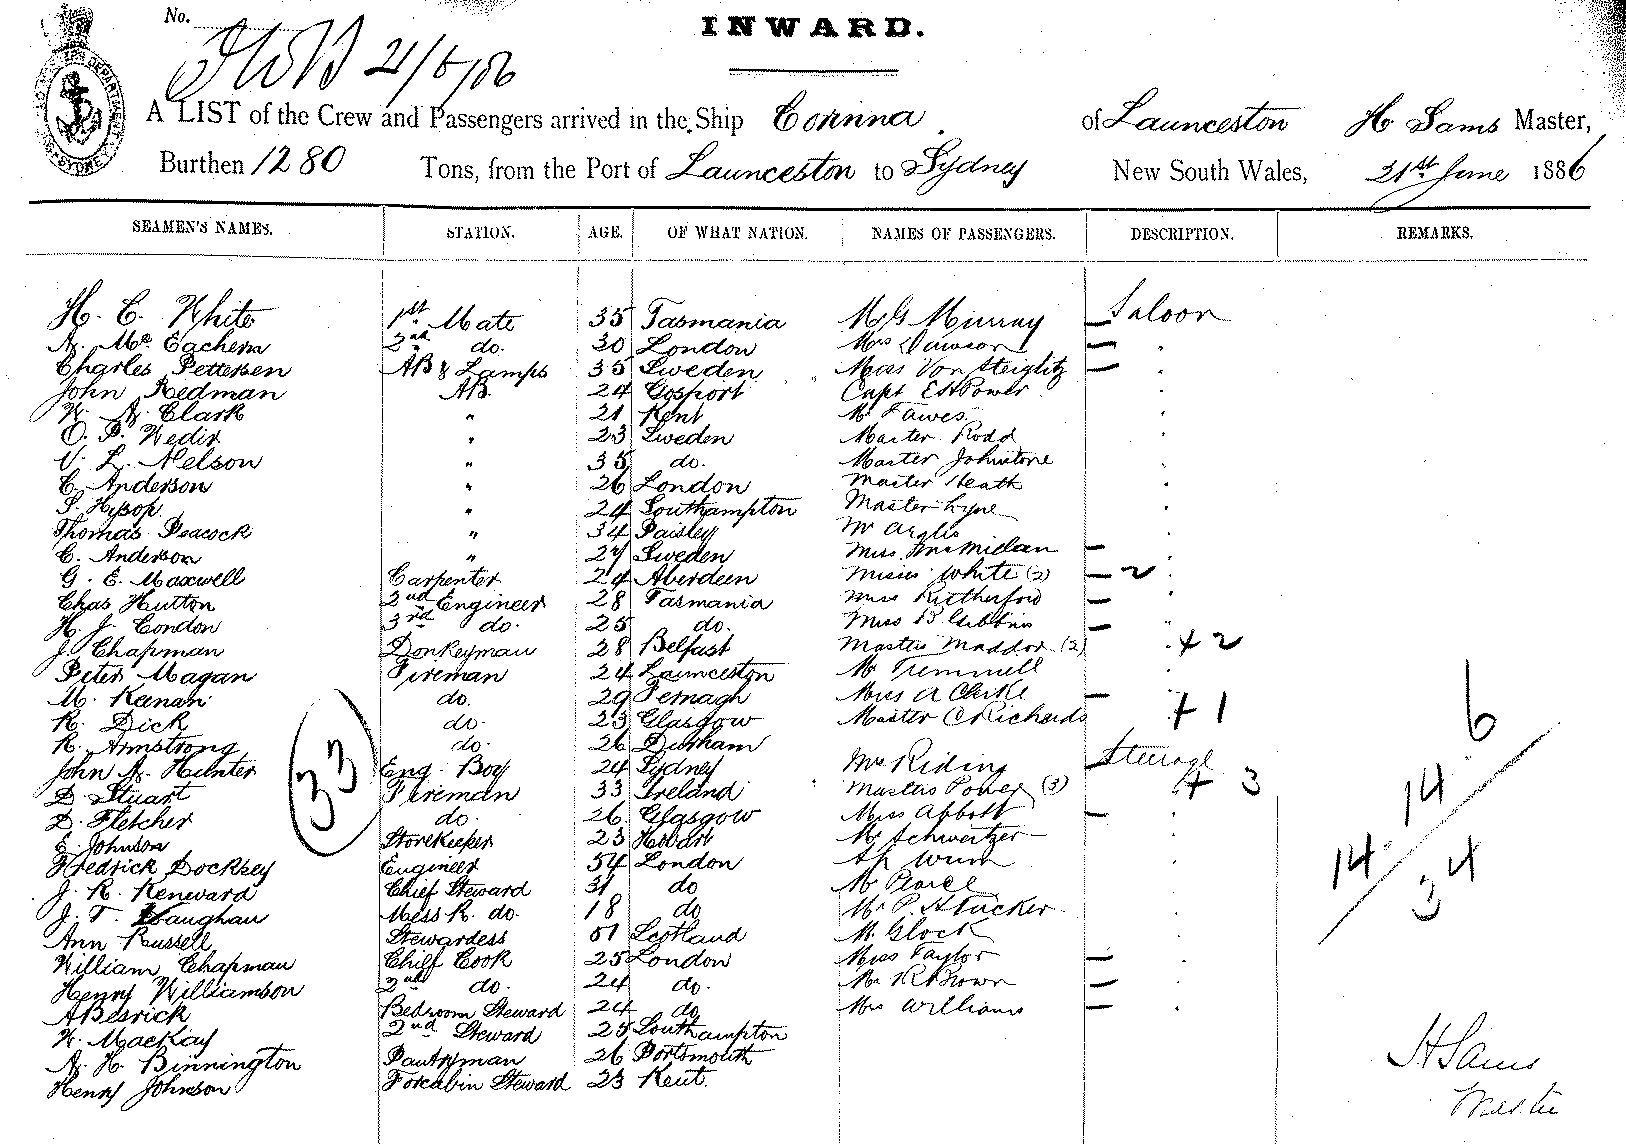 No.
INWARD.
21/6/86
A LIST of the Crew and Passengers arrived in the Ship Corinna of Launceston H Sams Master,
Burthen 1280 Tons, from the Port of Launceston to Sydney New South Wales, 21st June 1886
SEAMEN'S NAMES. STATION. AGE. OF WHAT NATION. NAMES OF PASSENGERS. DESCRIPTION. REMARKS.
H. C. White 1st Mate 35 Tasmania Murray Saloon
A. Mc Eachern 2nd do. 30 London Mrs Dawson
Charles Pettersen AB & Lamps 35 Sweden Miss Von Steiglitz
John Redman AB. 24 Gosport Capt Power
Clark " 21 Kent Mr Fawes
O. P. Wedir " 23 Sweden Master Rodd
V. L. Nelson " 35 do. Master Johnstone
C. Anderson " 26 London Master Heath
S. Hysop " 24 Southampton Master Lyne
Thomas Peacock " 34 Paisley Mr
C. Anderson " 27 Sweden Miss McMillan
G. E. Maxwell Carpenter 24 Aberdeen Misses White (2) 2
Chas Hutton 2nd Engineer 28 Tasmania Miss Rutherford
H. J. Condon 3rd do. 25 do. Miss B. Gibbins
J. Chapman Donkeyman 28 Belfast Masters Maddox (2) + 2
Peter Magan Fireman 24 Launceston Mr Tremmell
M. Keenan do. 29 Miss A Clerke
R. Dick do. 23 Glasgow Master C Richards + 1
R. Armstrong do. 26 Durham
John A. Hunter Eng. Boy 24 Sydney Mrs Riding Steerage
D Stuart Fireman 33 Ireland Masters Power (3) + 3
D. Fletcher do. 26 Glasgow Miss Abbott
E. Johnson Storekeeper 23 Hobart Mr Schweitzer
Fredrick Docksey Engineer 54 London
J. R. Kenward Chief Steward 31 do Mr Pearce
J. T. Vaughan Mess R. do. 18 do Mr P. H Tucker
Ann Russell Stewardess 51 Scotland Mr Glock
William Chapman Chief Cook 25 London Miss Taylor
Henry Williamson 2nd do. 24 do. Brown
A Besrick Bedroom Steward 24 do Mrs Williams
W. MacKay 2nd Steward 25 Southampton
A. H. Binnington Pantryman 26 Portsmouth
Henry Johnson Forcabin Steward 23 Kent.
33
6
14
14
34
H Sams
Master